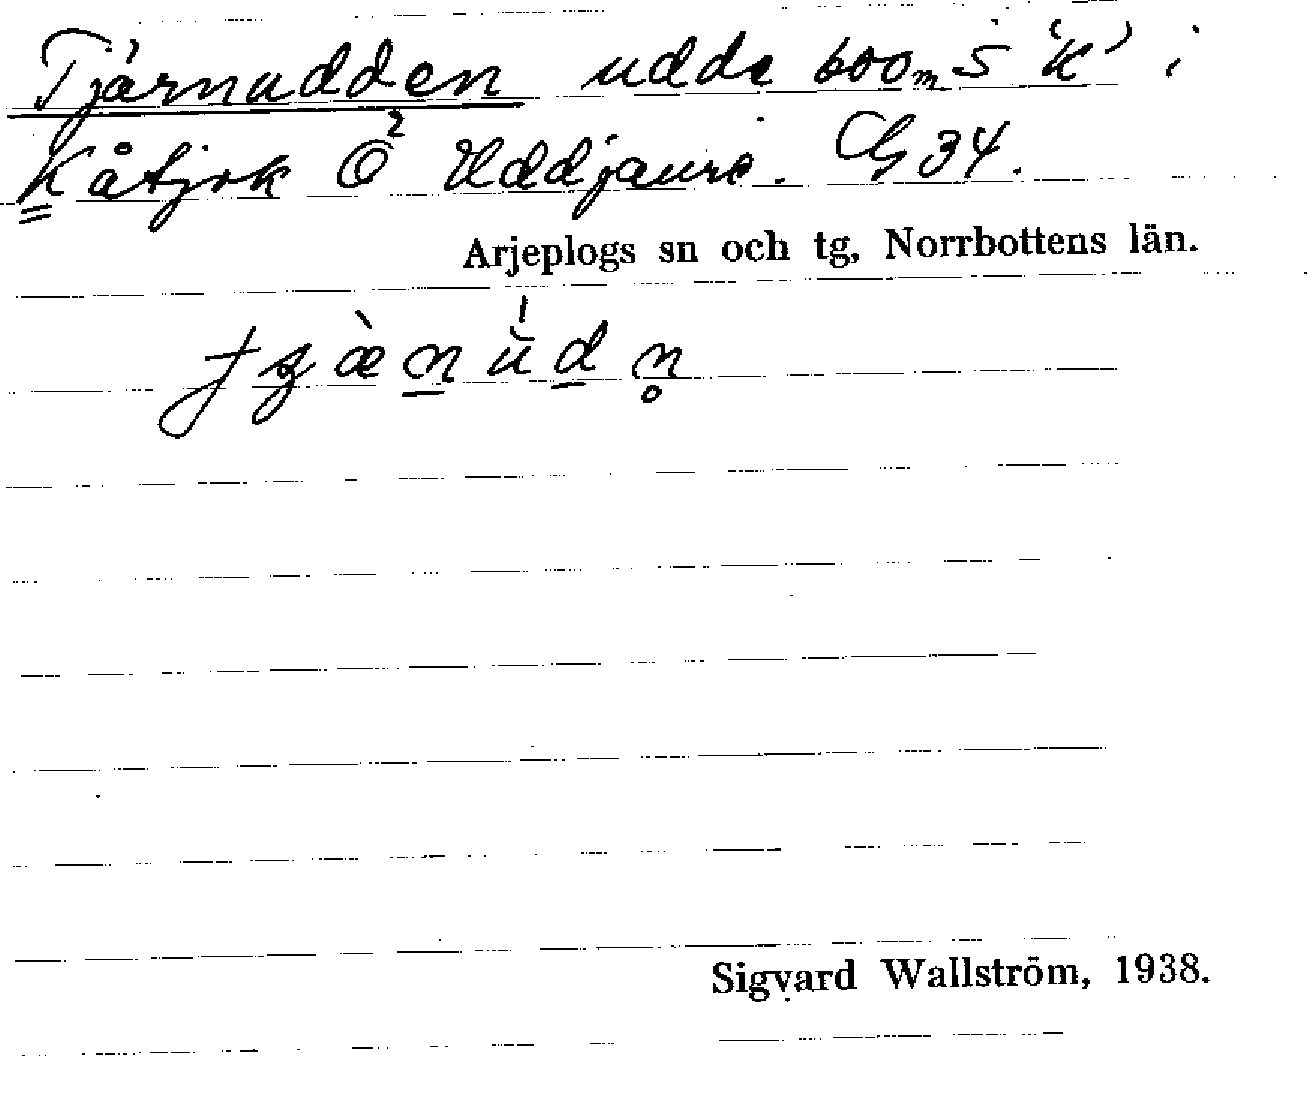 Tjärnudden udde 600 m S 'K' i
Kåtjok Ö² Uddjaure. CG 34.
Arjeplogs sn och tg, Norrbottens län.
Sigvard Wallström, 1938.